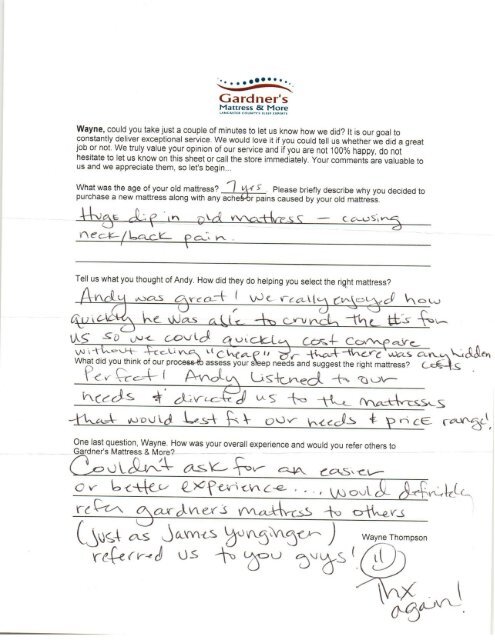 Gardner's
Mattress & More
LANCASTER COUNTY'S SLEEP EXPERTS
Wayne, could you take just a couple of minutes to let us know how we did? It is our goal to
constantly deliver exceptional service. We would love it if you could tell us whether we did a great
job or not. We truly value your opinion of our service and if you are not 100% happy, do not
hesitate to let us know on this sheet or call the store immediately. Your comments are valuable to
us and we appreciate them, so let's begin...
What was the age of your old mattress? 7 yrs Please briefly describe why you decided to
purchase a new mattress along with any aches or pains caused by your old mattress.
Huge dip in old mattress - causing
neck/back pain.
Tell us what you thought of Andy. How did they do helping you select the right mattress?
Andy was great! We really enjoyed how
quickly he was able to crunch the #s for
us so we could quickly cost compare
without feeling "cheap" or that there was any hidden
costs.
What did you think of our process to assess your sleep needs and suggest the right mattress?
Perfect! Andy listened to our
needs & directed us to the mattresses
that would best fit our needs & price range!
One last question, Wayne. How was your overall experience and would you refer others to
Gardner's Mattress & More?
Couldn't ask for an easier
or better experience.... would definitely
refer gardner's mattress to others
(just as James Yunginger)
referred us to you guys!
Wayne Thompson
Thx
again!